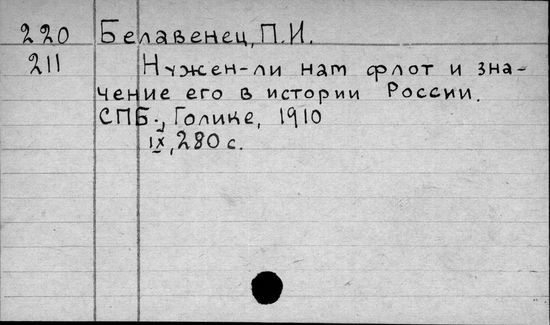 220 Белавенец, П.И.
211 Нужен-ли нам флот и зна-
чение его в истории России.
СПБ., Голике, 1910
IX, 280 с.